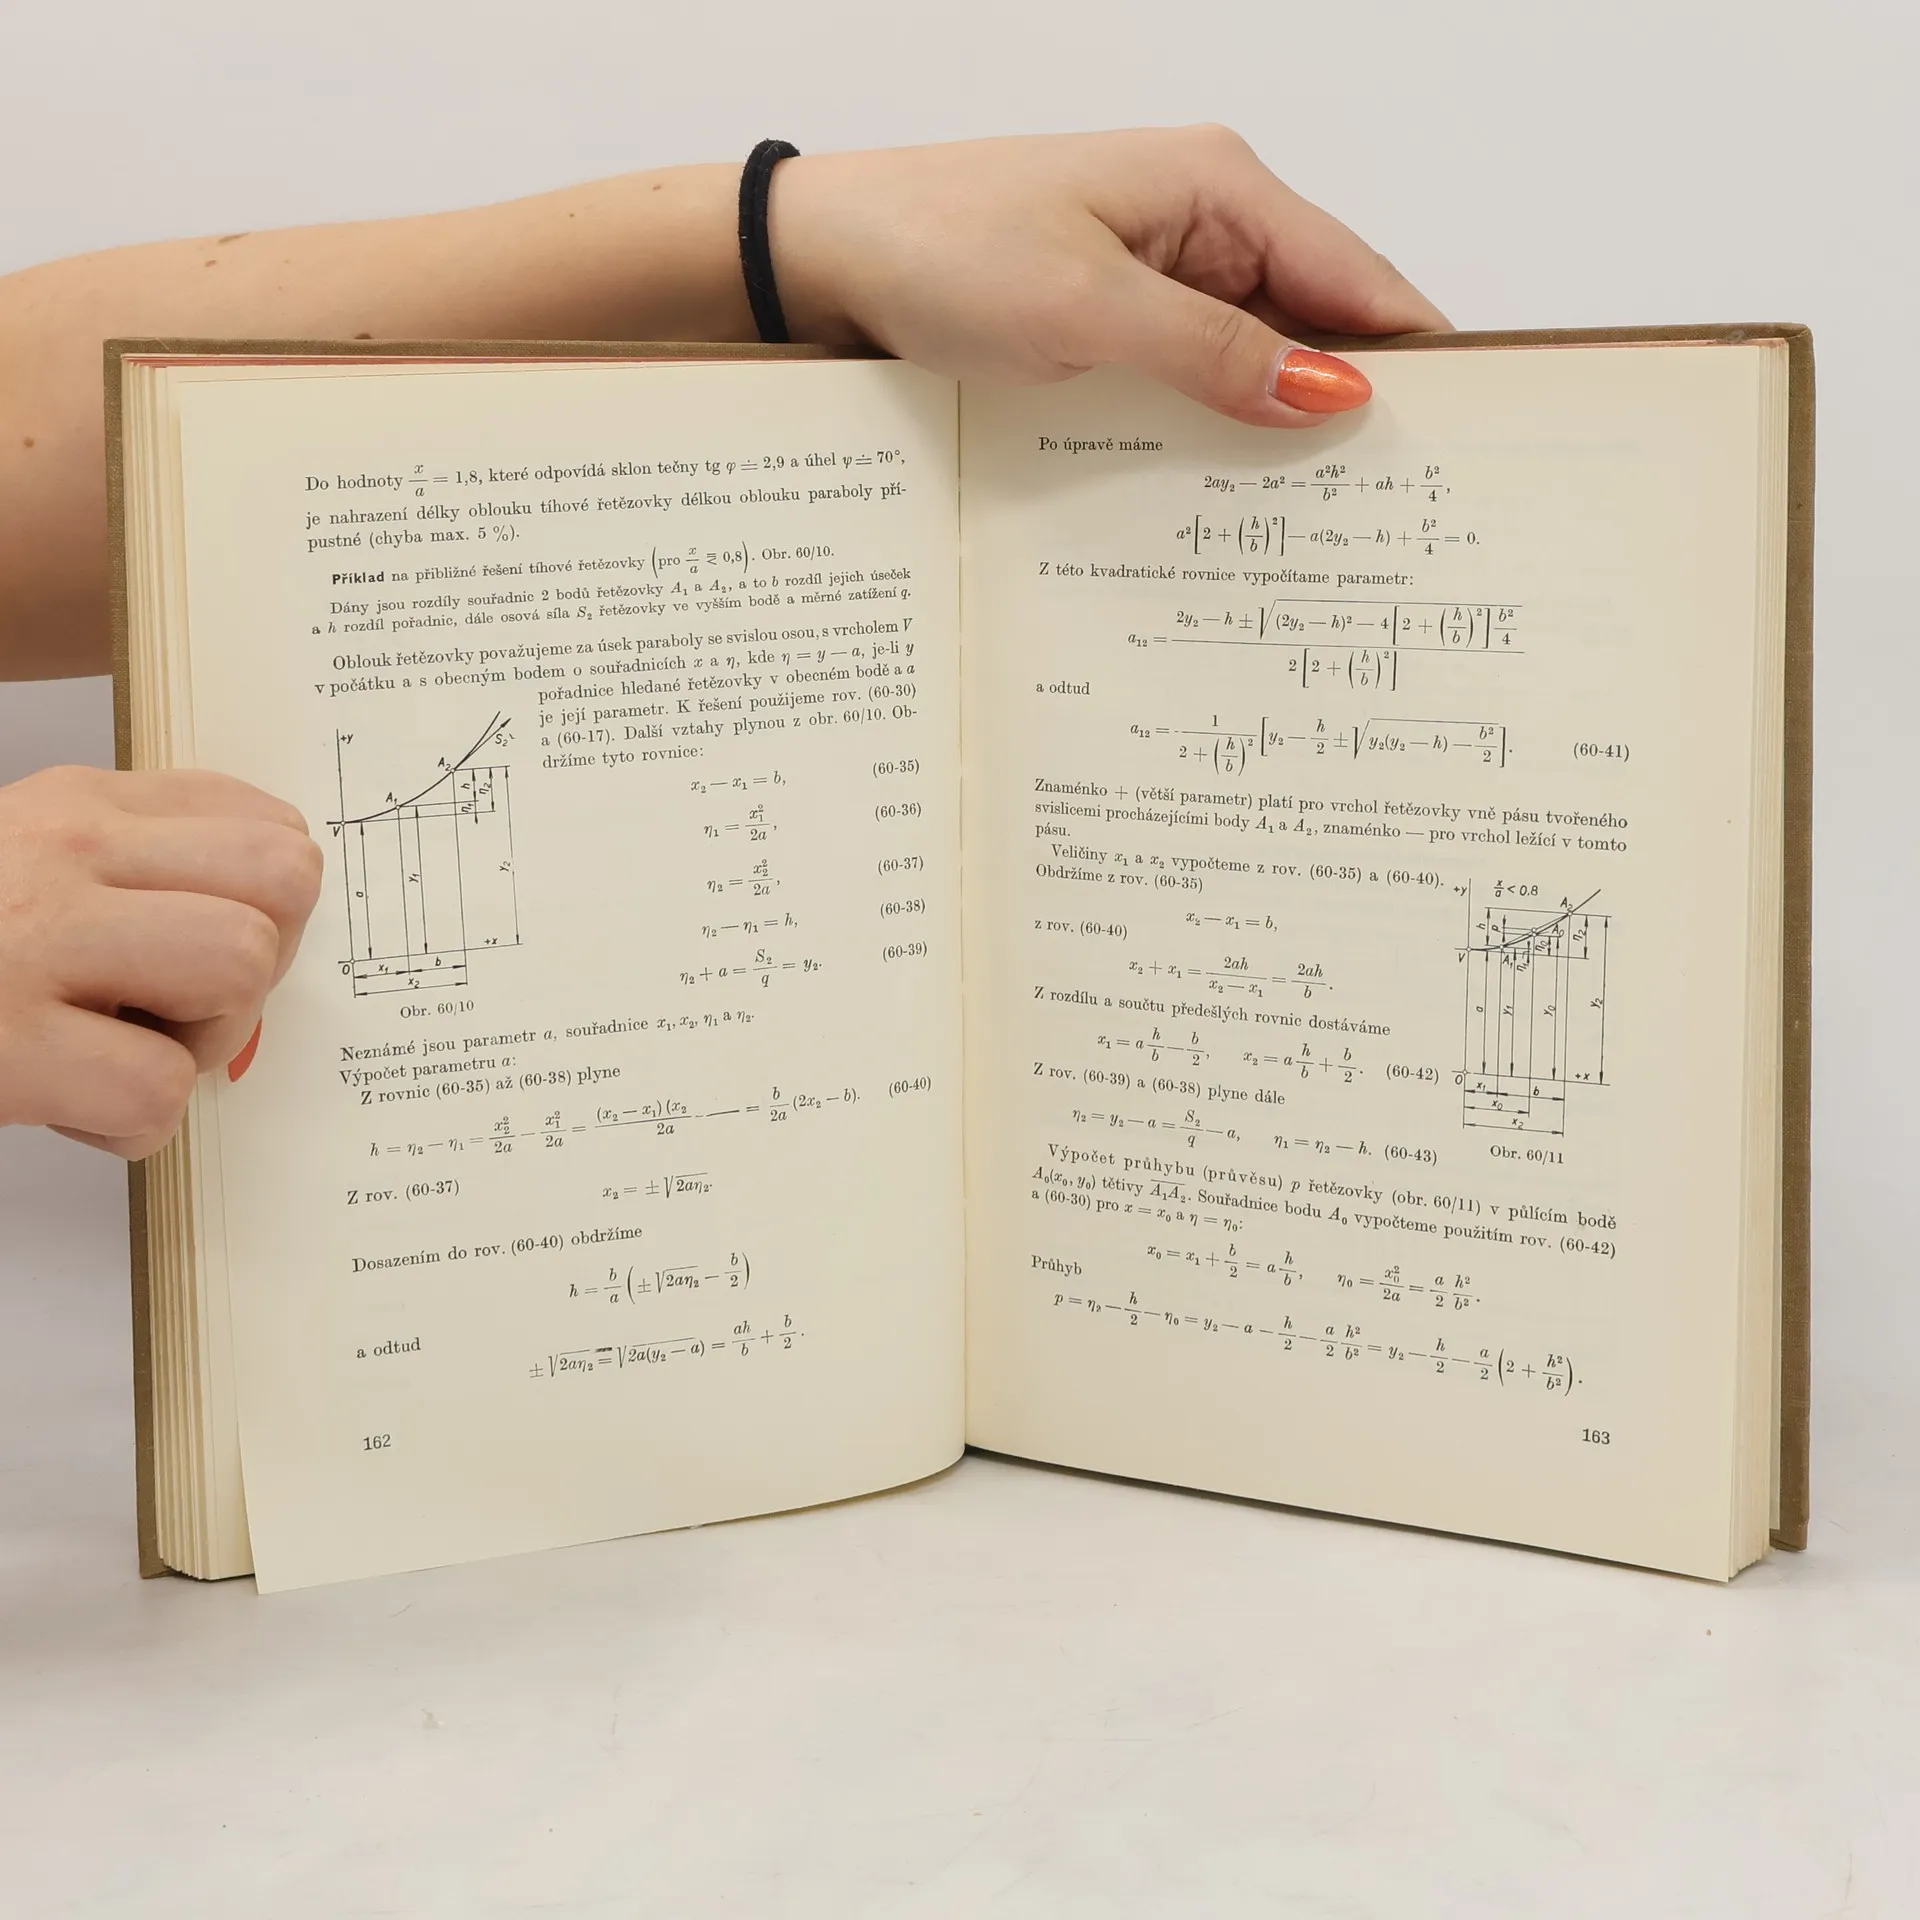 Do hodnoty x/a = 1,8, které odpovídá sklon tečny tg φ ≐ 2,9 a úhel φ ≐ 70°,
je nahrazení délky oblouku tíhové řetězovky délkou oblouku paraboly pří-
pustné (chyba max. 5 %).
Příklad na přibližné řešení tíhové řetězovky (pro x/a ⪌ 0,8). Obr. 60/10.
Dány jsou rozdíly souřadnic 2 bodů řetězovky A₁ a A₂, a to b rozdíl jejich úseček
a h rozdíl pořadnic, dále osová síla S₂ řetězovky ve vyšším bodě a měrné zatížení q.
Oblouk řetězovky považujeme za úsek paraboly se svislou osou, s vrcholem V
v počátku a s obecným bodem o souřadnicích x a η, kde η = y — a, je-li y
pořadnice hledané řetězovky v obecném bodě a a
je její parametr. K řešení použijeme rov. (60-30)
a (60-17). Další vztahy plynou z obr. 60/10. Ob-
držíme tyto rovnice:
x₂ — x₁ = b, (60-35)
η₁ = x₁²/2a, (60-36)
η₂ = x₂²/2a, (60-37)
η₂ — η₁ = h, (60-38)
η₂ + a = S₂/q = y₂. (60-39)
+y
S₂
A₂
A₁
h
η₂
η₁
V
a
y₁
y₂
+x
O
x₁
b
x₂
Obr. 60/10
Neznámé jsou parametr a, souřadnice x₁, x₂, η₁ a η₂.
Výpočet parametru a:
Z rovnic (60-35) až (60-38) plyne
h = η₂ — η₁ = x₂²/2a — x₁²/2a = (x₂ — x₁) (x₂ /2a = b/2a (2x₂ — b). (60-40)
Z rov. (60-37) x₂ = ± √2aη₂.
Dosazením do rov. (60-40) obdržíme
h = b/a (± √2aη₂ — b/2)
a odtud
± √2aη₂ = √2a(y₂ — a) = ah/b + b/2.
162
Po úpravě máme
2ay₂ — 2a² = a²h²/b² + ah + b²/4,
a² [2 + (h/b)²] — a(2y₂ — h) + b²/4 = 0.
Z této kvadratické rovnice vypočítame parametr:
a₁₂ = 2y₂ — h ± √(2y₂ — h)² — 4 [2 + (h/b)²] b²/4 / 2 [2 + (h/b)²]
a odtud
a₁₂ = 1/2 + (h/b)² [y₂ — h/2 ± √y₂(y₂ — h) — b²/2]. (60-41)
Znaménko + (větší parametr) platí pro vrchol řetězovky vně pásu tvořeného
svislicemi procházejícími body A₁ a A₂, znaménko — pro vrchol ležící v tomto
pásu.
Veličiny x₁ a x₂ vypočteme z rov. (60-35) a (60-40).
Obdržíme z rov. (60-35)
x₂ — x₁ = b,
z rov. (60-40)
x₂ + x₁ = 2ah/x₂ — x₁ = 2ah/b.
Z rozdílu a součtu předešlých rovnic dostáváme
x₁ = a h/b — b/2, x₂ = a h/b + b/2. (60-42)
Z rov. (60-39) a (60-38) plyne dále
η₂ = y₂ — a = S₂/q — a, η₁ = η₂ — h. (60-43)
+y
x/a < 0,8
A₂
h
p
A₀
η₂
V
A₁
η₁
η₀
a
y₁
y₀
y₂
O
+x
x₁
b
x₀
x₂
Obr. 60/11
Výpočet průhybu (průvěsu) p řetězovky (obr. 60/11) v půlícím bodě
A₀(x₀, y₀) tětivy A₁A₂. Souřadnice bodu A₀ vypočteme použitím rov. (60-42)
a (60-30) pro x = x₀ a η = η₀:
x₀ = x₁ + b/2 = a h/b, η₀ = x₀²/2a = a/2 h²/b².
Průhyb
p = η₂ — h/2 — η₀ = y₂ — a — h/2 — a/2 h²/b² = y₂ — h/2 — a/2 (2 + h²/b²).
163